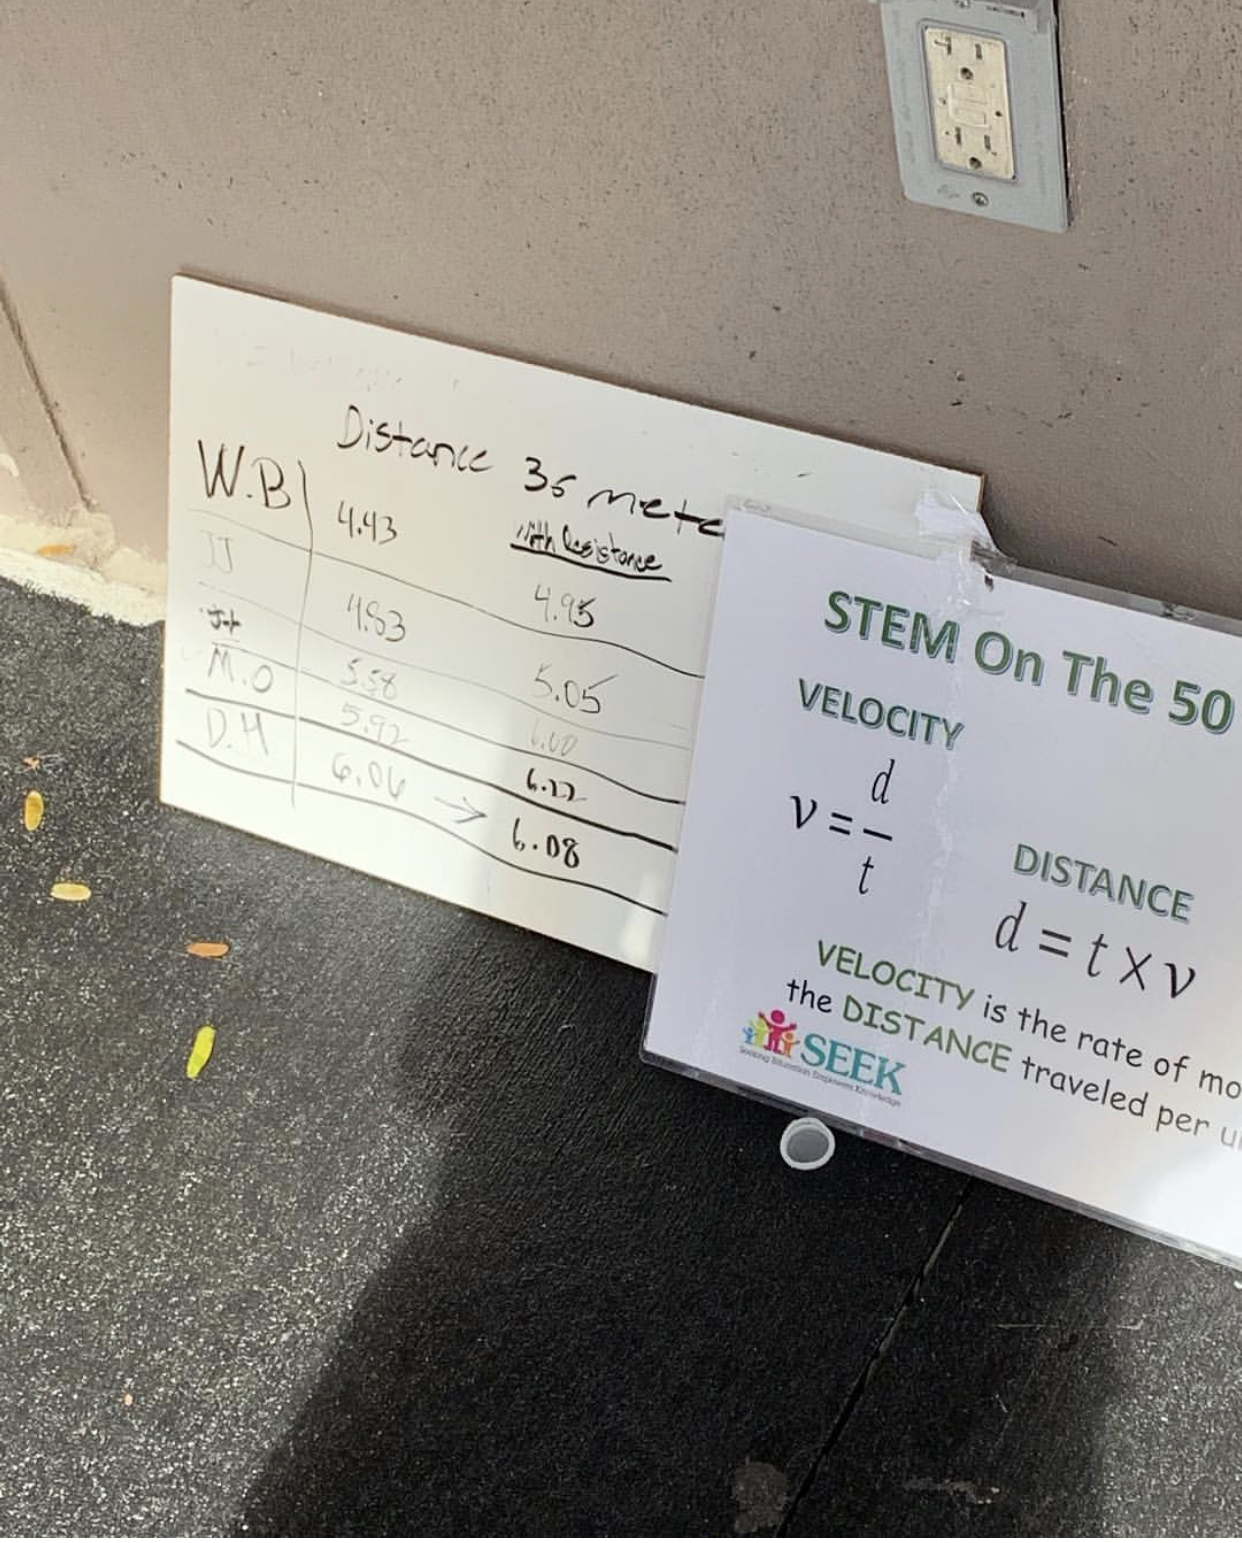 Distance 35 mete
W.B 4.43 with Resistance
4.95
JJ 4.83 5.05
J.t 5.58 6.00
M.O 5.92 6.22
D.H 6.06 → 6.08
STEM On The 50
VELOCITY
v = d
t
DISTANCE
d = t x v
VELOCITY is the rate of mo
the DISTANCE traveled per u
SEEK
Seeking Education Empowers Knowledge